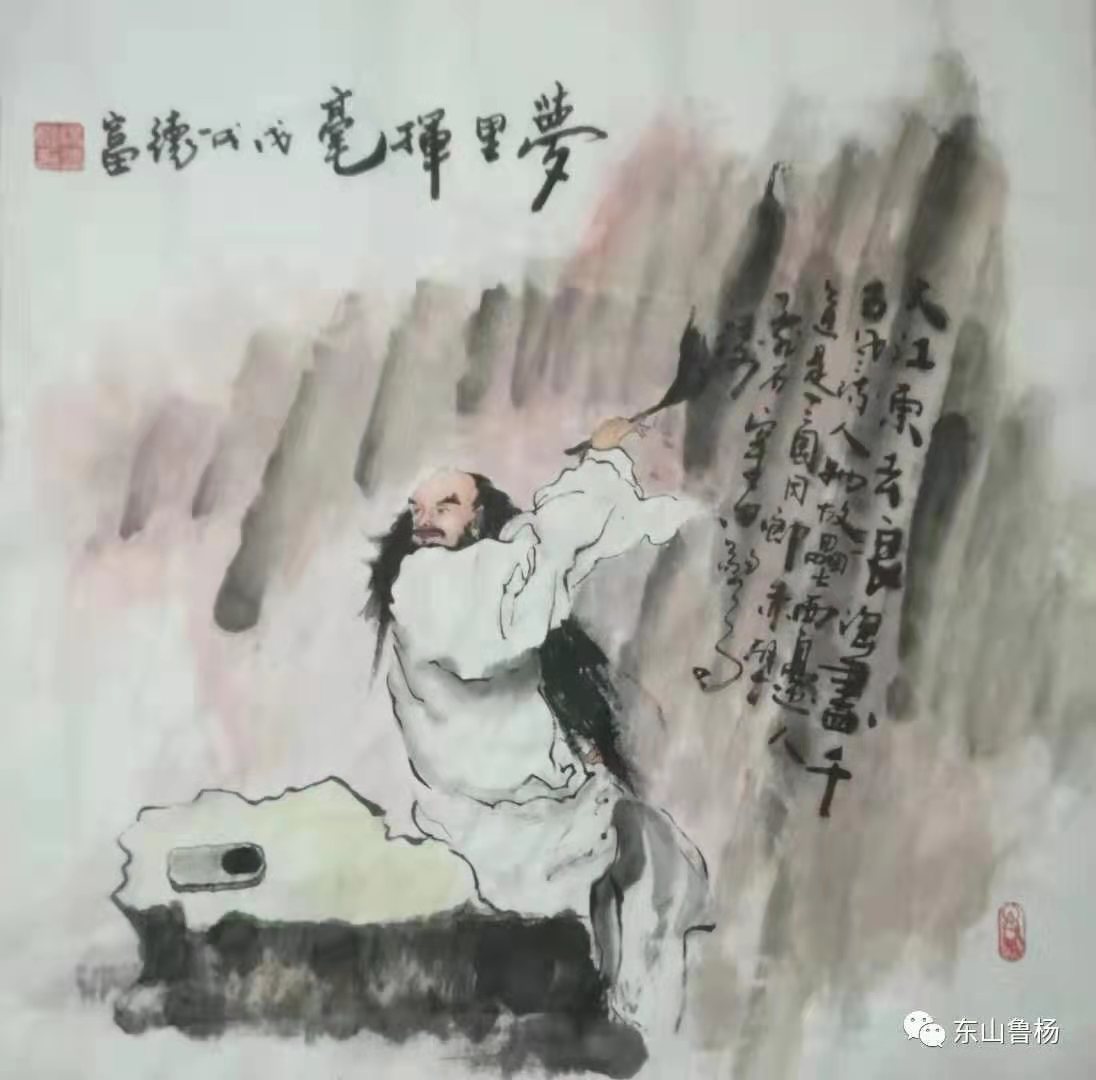 夢里揮毫 戊戌 德富
大江東去浪淘盡、千
古風流人物故壘西邊人
道是三国周郎赤壁
亂石穿空
东山鲁杨